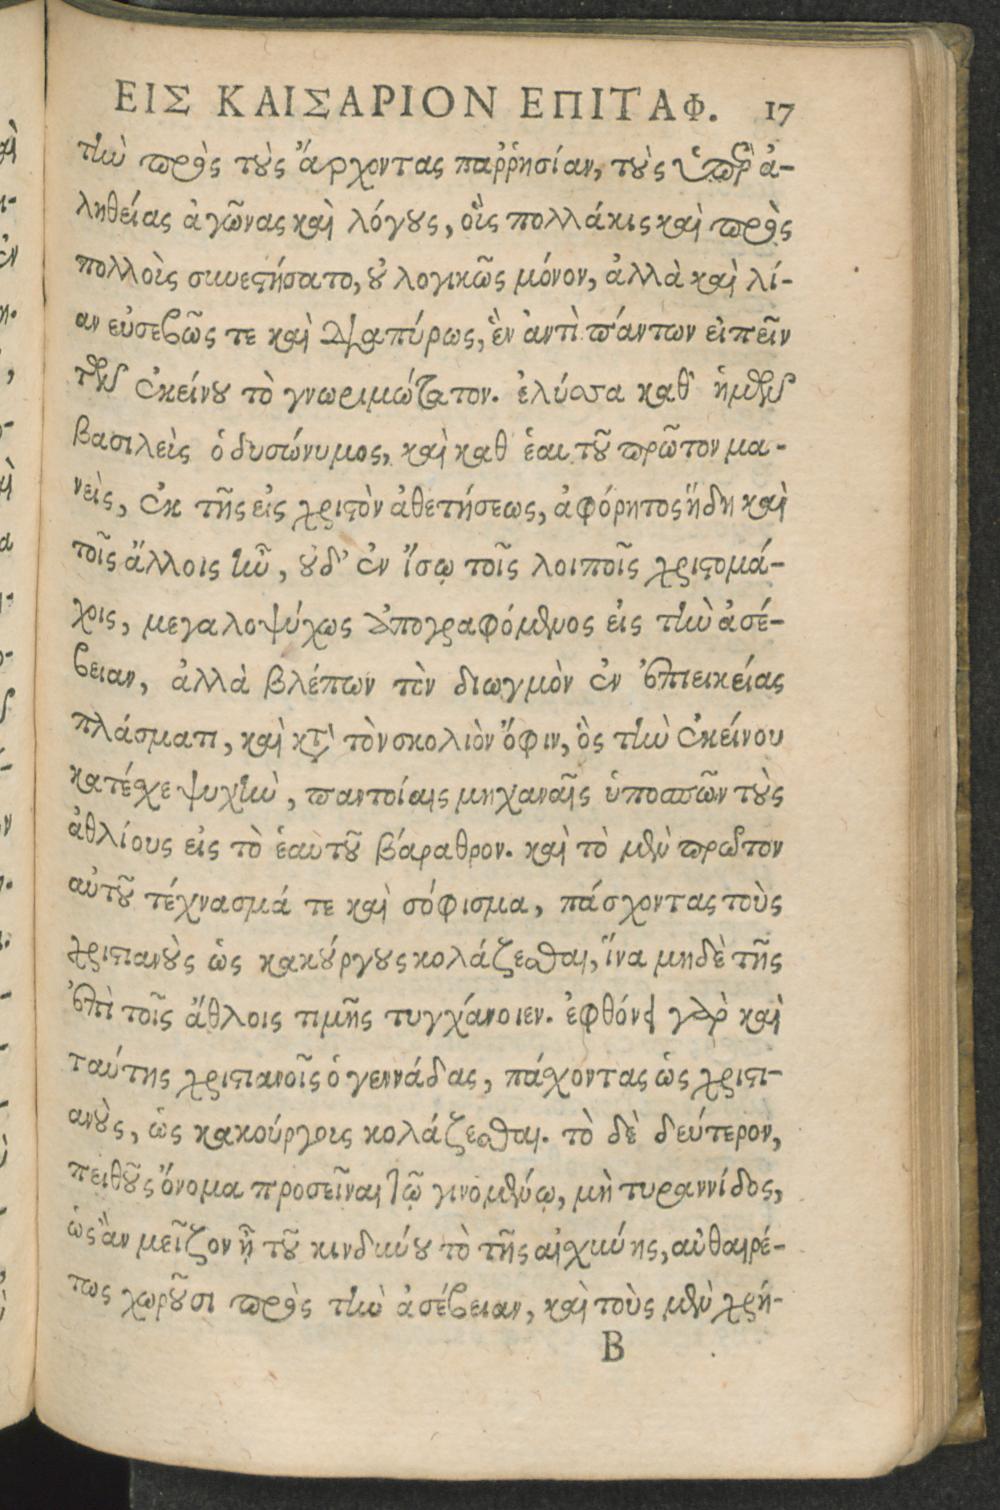 ΕΙΣ ΚΑΙΣΑΡΙΟΝ ΕΠΙΤΑΦ. 17
τὴν πρὸς τοὺς ἄρχοντας παῤῥησίαν, τοὺς ὑπὲρ ἀ-
ληθείας ἀγῶνας καὶ λόγους, οἷς πολλάκις καὶ πρὸς
πολλοὺς συνεστήσατο, οὐ λογικῶς μόνον, ἀλλὰ καὶ λί-
αν εὐσεβῶς τε καὶ διαπύρως, ἓν ἀντὶ πάντων εἰπεῖν
τῶν ἐκείνου τὸ γνωριμώτατον. ἐλύσσα καθ' ἡμῶν
βασιλεὺς ὁ δυσώνυμος, καὶ καθ' ἑαυτοῦ πρῶτον μα-
νεὶς, ἐκ τῆς εἰς χριστὸν ἀθετήσεως, ἀφόρητος ἤδη καὶ
τοῖς ἄλλοις ἦν, οὐδ' ἐν ἴσῳ τοῖς λοιποῖς χριστομά-
χοις, μεγαλοψύχως ἀπογραφόμενος εἰς τὴν ἀσέ-
βειαν, ἀλλὰ βλέπων τὸν διωγμὸν ἐν ἐπιεικείας
πλάσματι, καὶ κατὰ τὸν σκολιὸν ὄφιν, ὃς τὴν ἐκείνου
κατέσχε ψυχὴν, παντοίαις μηχαναῖς ὑποσπῶν τοὺς
ἀθλίους εἰς τὸ ἑαυτοῦ βάραθρον. καὶ τὸ μὲν πρῶτον
αὐτοῦ τέχνασμά τε καὶ σόφισμα, πάσχοντας τοὺς
χριστιανοὺς ὡς κακούργους κολάζεσθαι, ἵνα μηδὲ τῆς
ἐπὶ τοῖς ἄθλοις τιμῆς τυγχάνοιεν. ἐφθόνει γὰρ καὶ
ταύτης χριστιανοῖς ὁ γεννάδας, πάσχοντας ὡς χριστι-
ανοὺς, ὡς κακούργοις κολάζεσθαι. τὸ δὲ δεύτερον,
πειθοῦς ὄνομα προσεῖναι τῷ γινομένῳ, μὴ τυραννίδος,
ὡς ἂν μεῖζον ᾖ τοῦ κινδύνου τὸ τῆς αἰσχύνης, αὐθαιρέ-
τως χωροῦσι πρὸς τὴν ἀσέβειαν, καὶ τοὺς μὲν χρή-
B